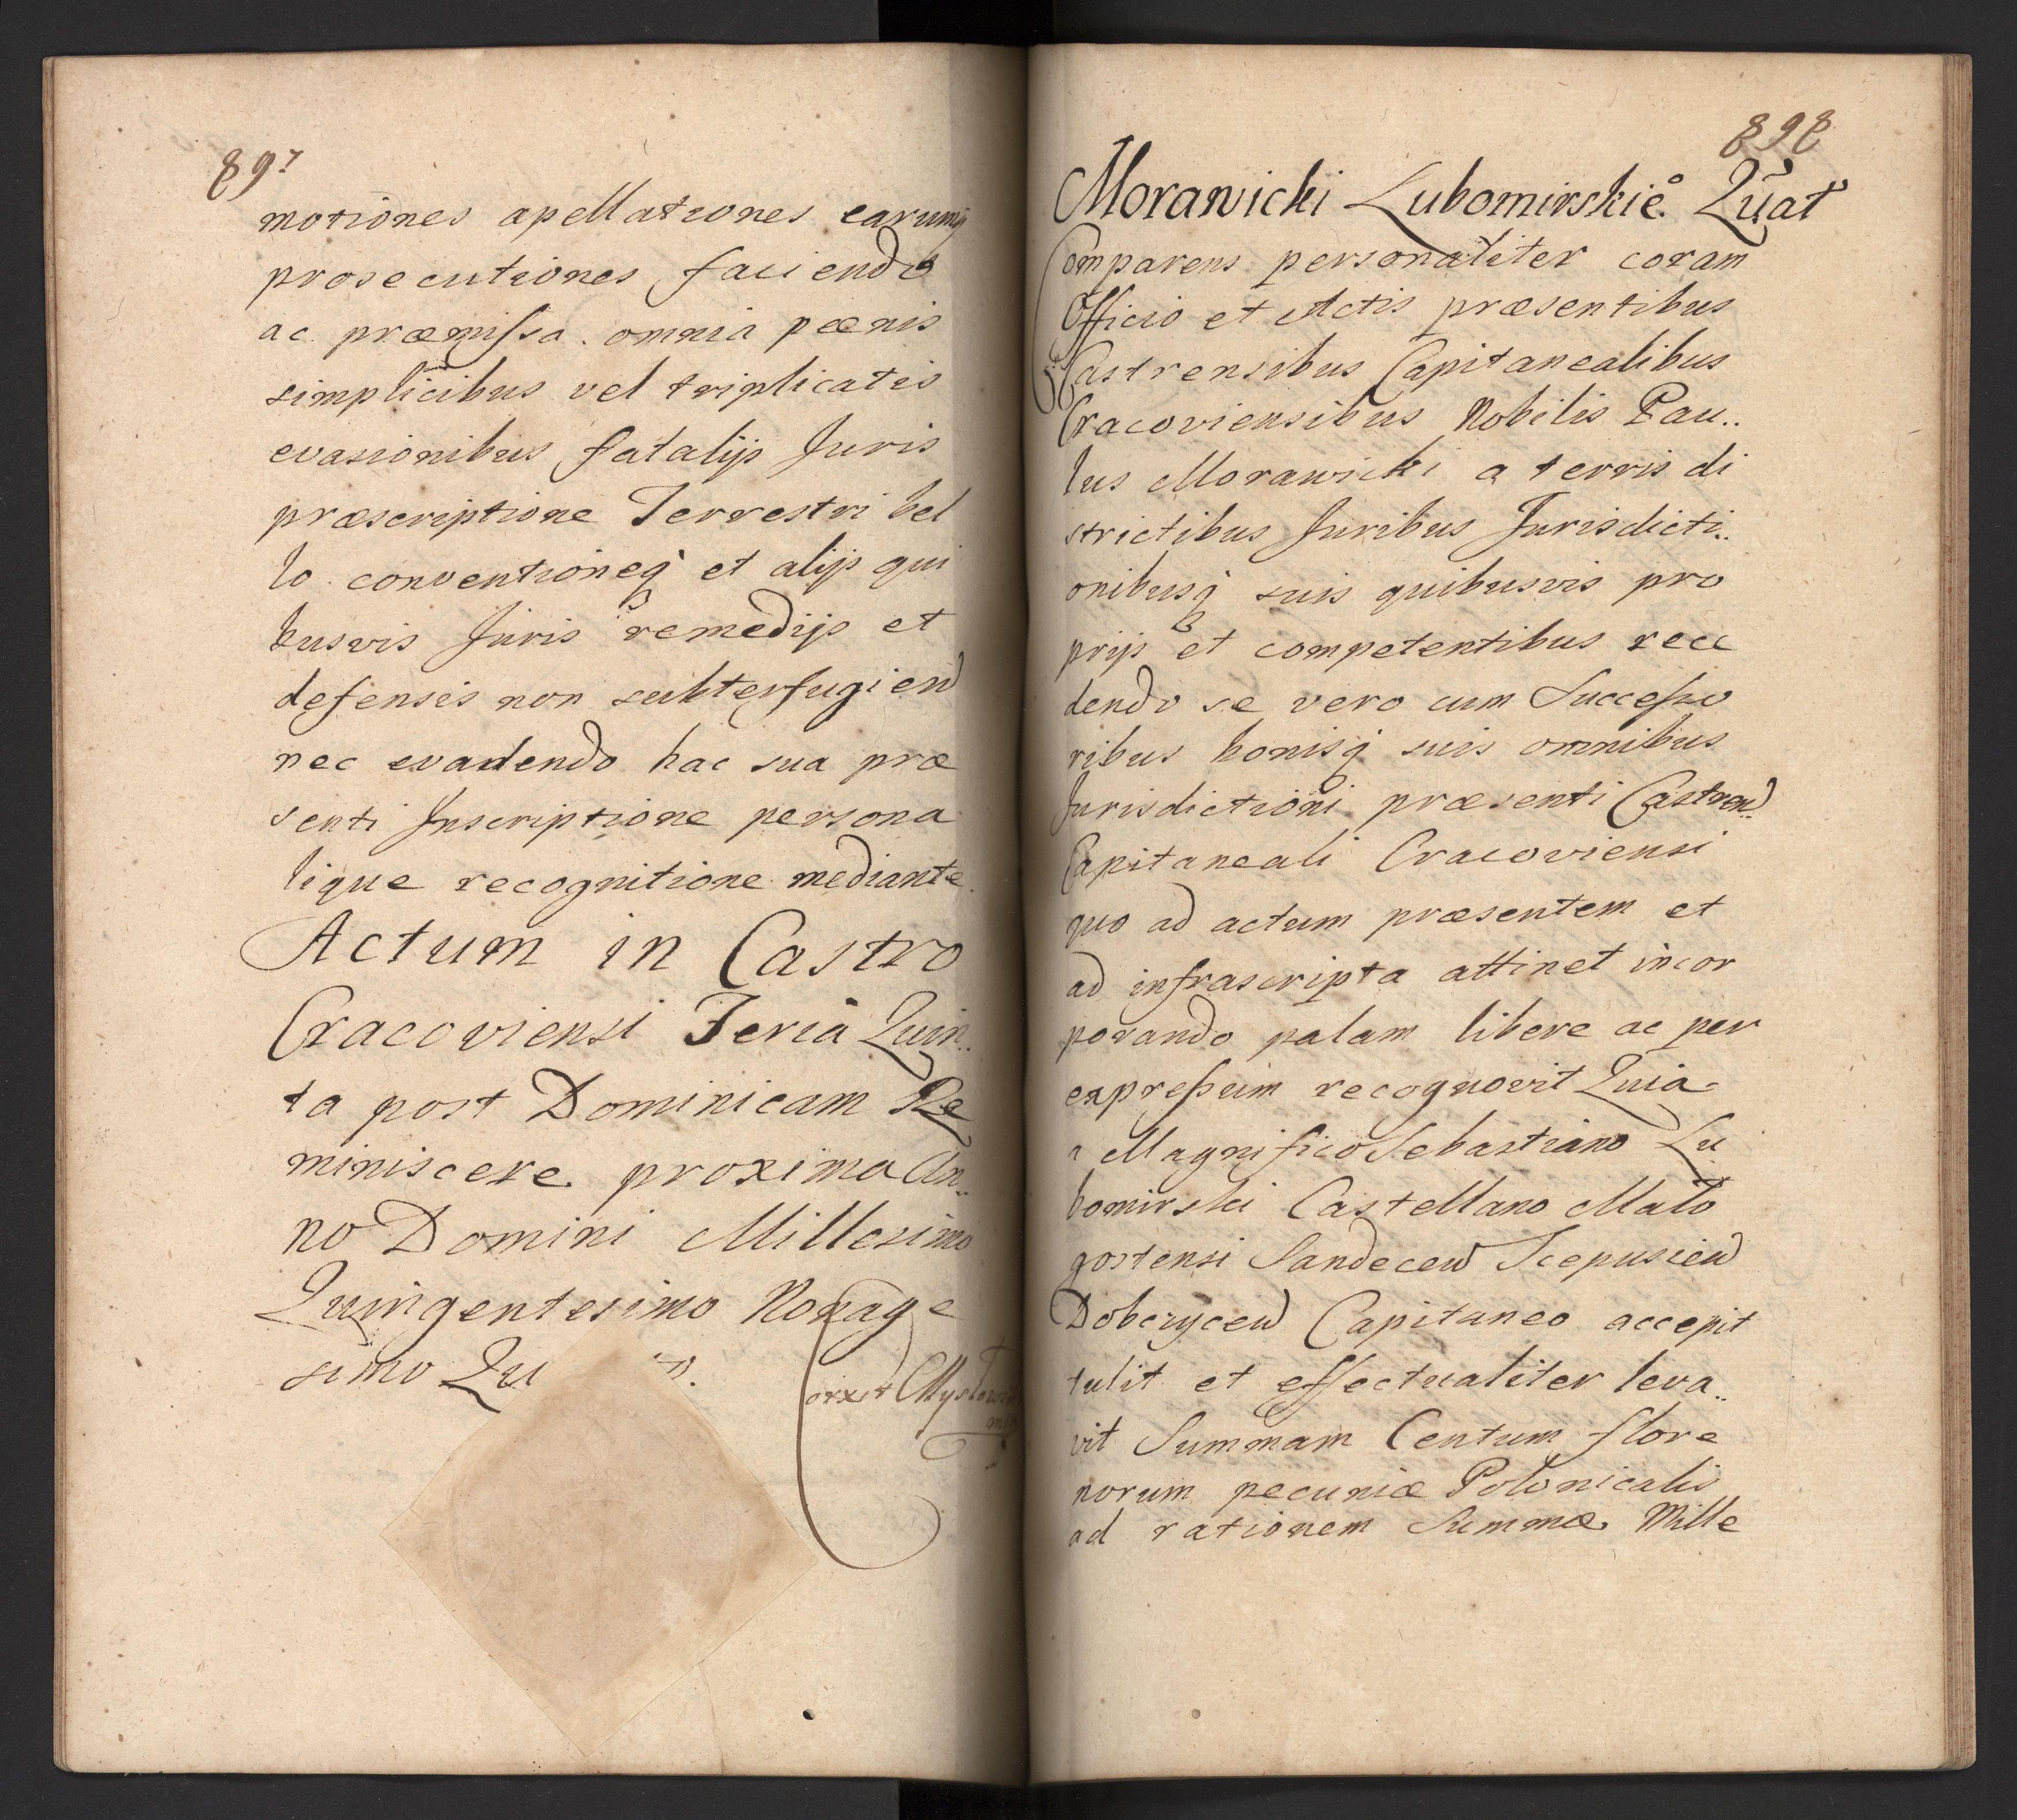 897
motiones apellationes earumq
prosecutiones faciendo
ac præmissa omnia pœnis
simplicibus vel triplicatis
evasionibus fatalijs Juris
præscriptione Terrestri bel
lo conventioneq et alijs qui
busvis Juris remedijs et
defensis non subterfugiend
nec evadendo hac sua præ
senti Inscriptione persona
lique recognitione mediante
Actum in Castro
Cracoviensi Feria Quin..
ta post Dominicam Re
miniscere proxima An..
no Domini Millesimo
Quingentesimo Nonage
simo Qu
898
Morawicki Lubomirskie. Quat
Comparens personaliter coram
Officio et Actis præsentibus
Castrensibus Capitanealibus
Cracoviensibus Nobilis Pau..
lus Morawicki a terris di
strictibus Juribus Jurisdicti..
onibusq suis quibusvis pro
prijs et competentibus rece
dendo se vero cum Successo
ribus bonisq suis omnibus
Jurisdictioni præsenti Castren..
Capitaneali Cracoviensi
quo ad actum præsentem et
ad infrascripta attinet incor
porando palam libere ac per
expressum recognovit Quia
a Magnifico Sebastiano Lu
bomirski Castellano Malo
gostensi Sandecen Scepusien
Dobczycen Capitaneo accepit
tulit et effectualiter leva..
vit Summam Centum flore
norum pecuniæ Polonicalis
ad rationem Summæ Mille